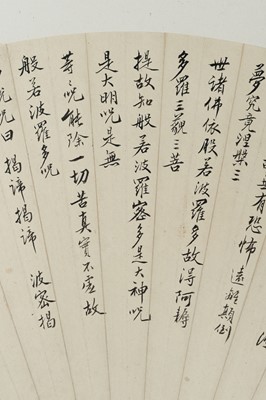 無有恐怖遠離顛倒
夢究竟涅槃三
世諸佛依般若波羅多故得阿耨
多羅三藐三菩
提故知般若波羅密多是大神咒
是大明咒是無
等咒能除一切苦真實不虛故
般若波羅多咒
咒曰揭諦揭諦波密揭